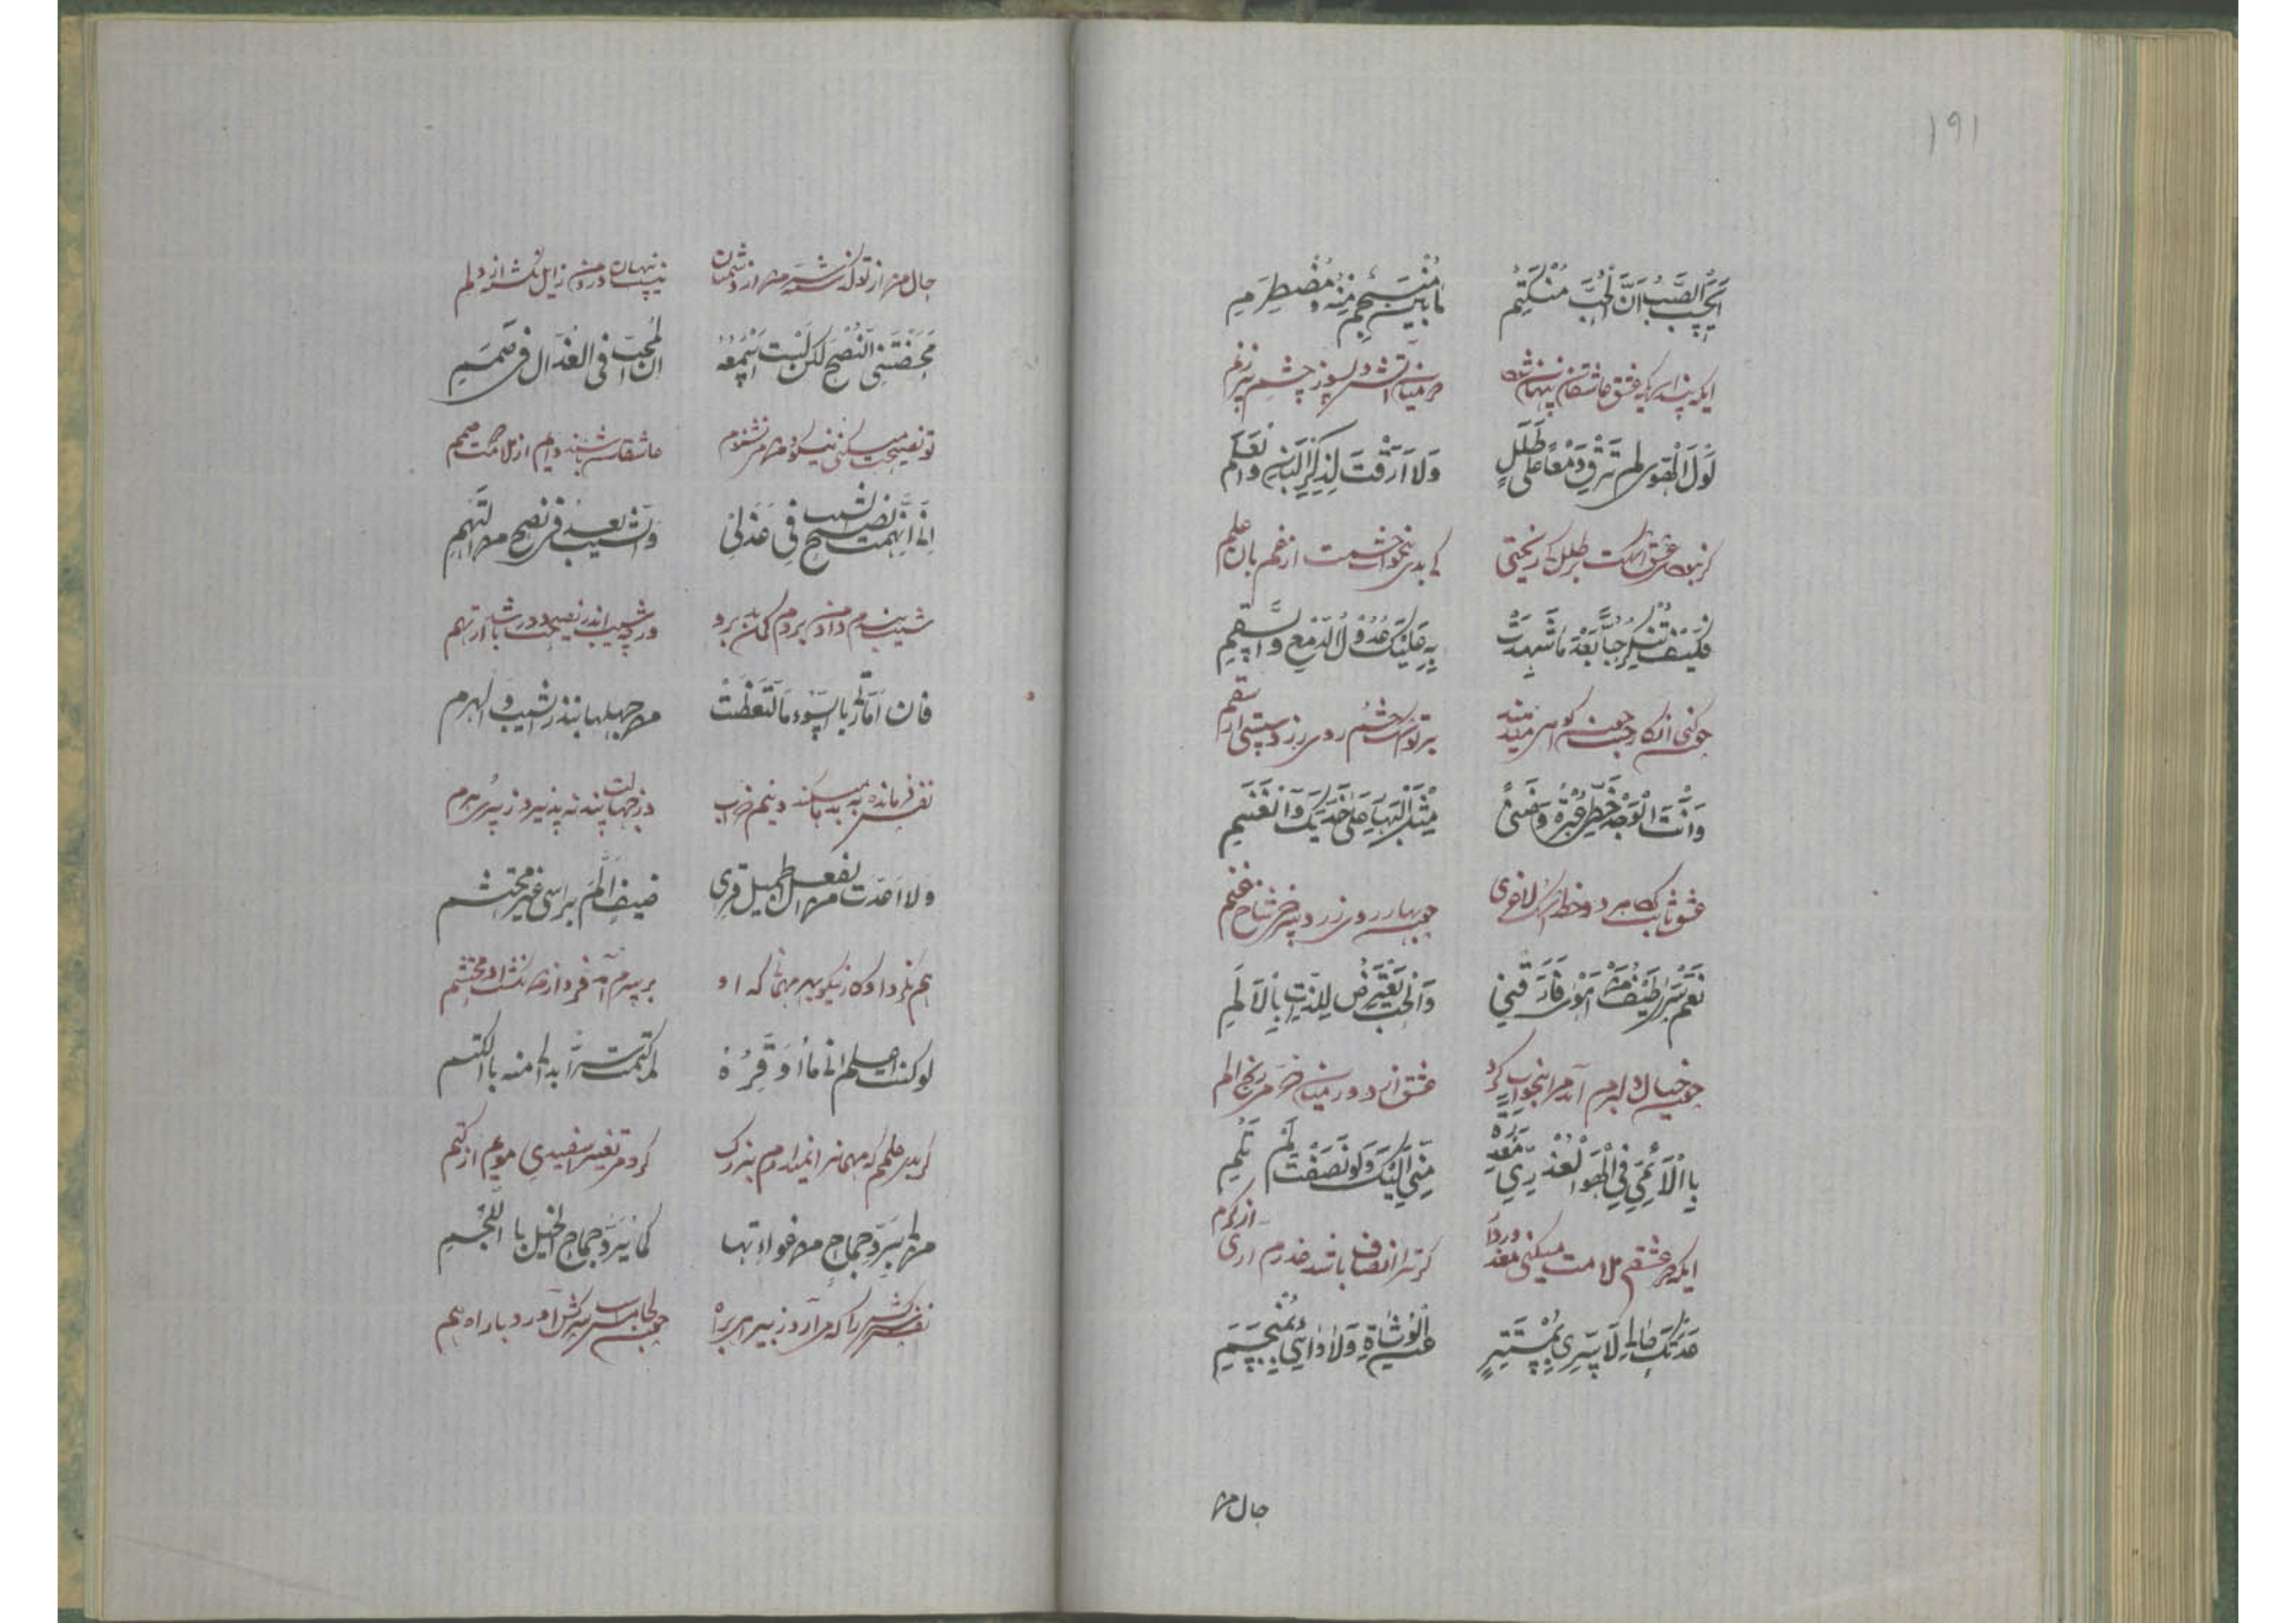 ۱۹۱
اَیَحْسَبُ الصَّبُّ اَنَّ الْحُبَّ مُنْکَتِمٌ مَا بَیْنَ مُنْسَجِمٍ مِنْهُ وَ مُضْطَرِمِ
ایکه پنداری که عشق عاشقان پنهان شود در میان آتش دلسوز چشم پر زنم
لَوْلَا الْهَوی لَمْ تُرِقْ دَمْعًا عَلی طَلَلٍ وَلَا اَرِقْتَ لِذِکْرِ الْبَانِ وَالْعَلَمِ
گر نبودی عشق اشکت بر طلل کی ریختی کی بدی بیخواب چشمت از غم بان علم
فَکَیْفَ تُنْکِرُ حُبًّا بَعْدَ مَا شَهِدَتْ بِهِ عَلَیْکَ عُدُوْلُ الدَّمْعِ وَالسَّقَمِ
چو کنی انکار حب چون گواهی میدهند بر تو اشک چشم روی زرد و پستی از سقم
وَاَثْبَتَ الْوَجْدُ خَطَّیْ عَبْرَةٍ وَضَنًی مِثْلَ الْبَهَارِ عَلی خَدَّیْکَ وَالْعَنَمِ
عشق ثابت کرد دو خط اشک لاغری چون بهار روی زرد سرخ شاخ عنم
نَعَمْ سَرَی طَیْفُ مَنْ اَهْوی فَاَرَّقَنِی وَالْحُبُّ یَعْتَرِضُ اللَّذَّاتِ بِالْاَلَمِ
چون خیال دلبرم آمد مرا بیخواب کرد عشق آرد در میان خرمی رنج الم
یَا لَائِمِی فِی الْهَوَی الْعُذْرِیِّ مَعْذِرَةً مِنِّی اِلَیْکَ وَلَوْ اَنْصَفْتَ لَمْ تَلُمِ
ایکه در عشقم ملامت میکنی معذور دار گر ترا انصاف باشد عذرم آری از کرم
عَدَتْکَ حَالِیَ لَا سِرِّی بِمُسْتَتِرٍ عَنِ الْوُشَاةِ وَلَا دَائِی بِمُنْحَسِمِ
حال من
حال من از تو گذشته سر من از دشمنان نیست پنهان درد من زایل نشد از دلم
مَحَضْتَنِی النُّصْحَ لکن لَسْتُ اَسْمَعُهُ ان المُحِبَّ فی العُذّال فی صَمَمِ
تو نصیحت میکنی نیکو و من می نشنوم عاشقان باشند دایم از ملامت صمم
اِنِّی اتَّهَمْتُ نَصِیحَ الشیب فِی عَذَلِی وَالشَّیب ابعد فی نصح من التُّهَمِ
شیب پندم داد من بردم گمان بد برو ورچه شیب اندر نصیحت دور باشد از تهم
فان اَمّارتی بالسّوءِ مَا اتَّعَظَتْ من جهلها بنذیر الشیب والهرم
نفس فرمانده به بد ما میکند دینم خراب وز جهالت پند نه پذیرد ز پیری هرم
ولا اعدت من الفعل الجمیل قری ضیفٍ اَلَمَّ براسی غیر محتشم
هم نکرد او کار نیکو بهر مهمانی که او بر سرم آمد فرود از من نشد او محتشم
لو کنت اعلم انی مَا اُوَقِّرُهُ کتمت سرّا بدا لی منه بالکتم
گر بدی علمم که مهمان را نمیدارم بزرگ کردمی تغییر سفیدی مویم از کتم
من لی بِرَدِّ جماح من غوایتها کما یُرَدُّ جماح الخیل باللُّجُمِ
نفس سرکش را که می آرد ز بیراهی براه چون لجام اسب سرکش آورد باراه هم